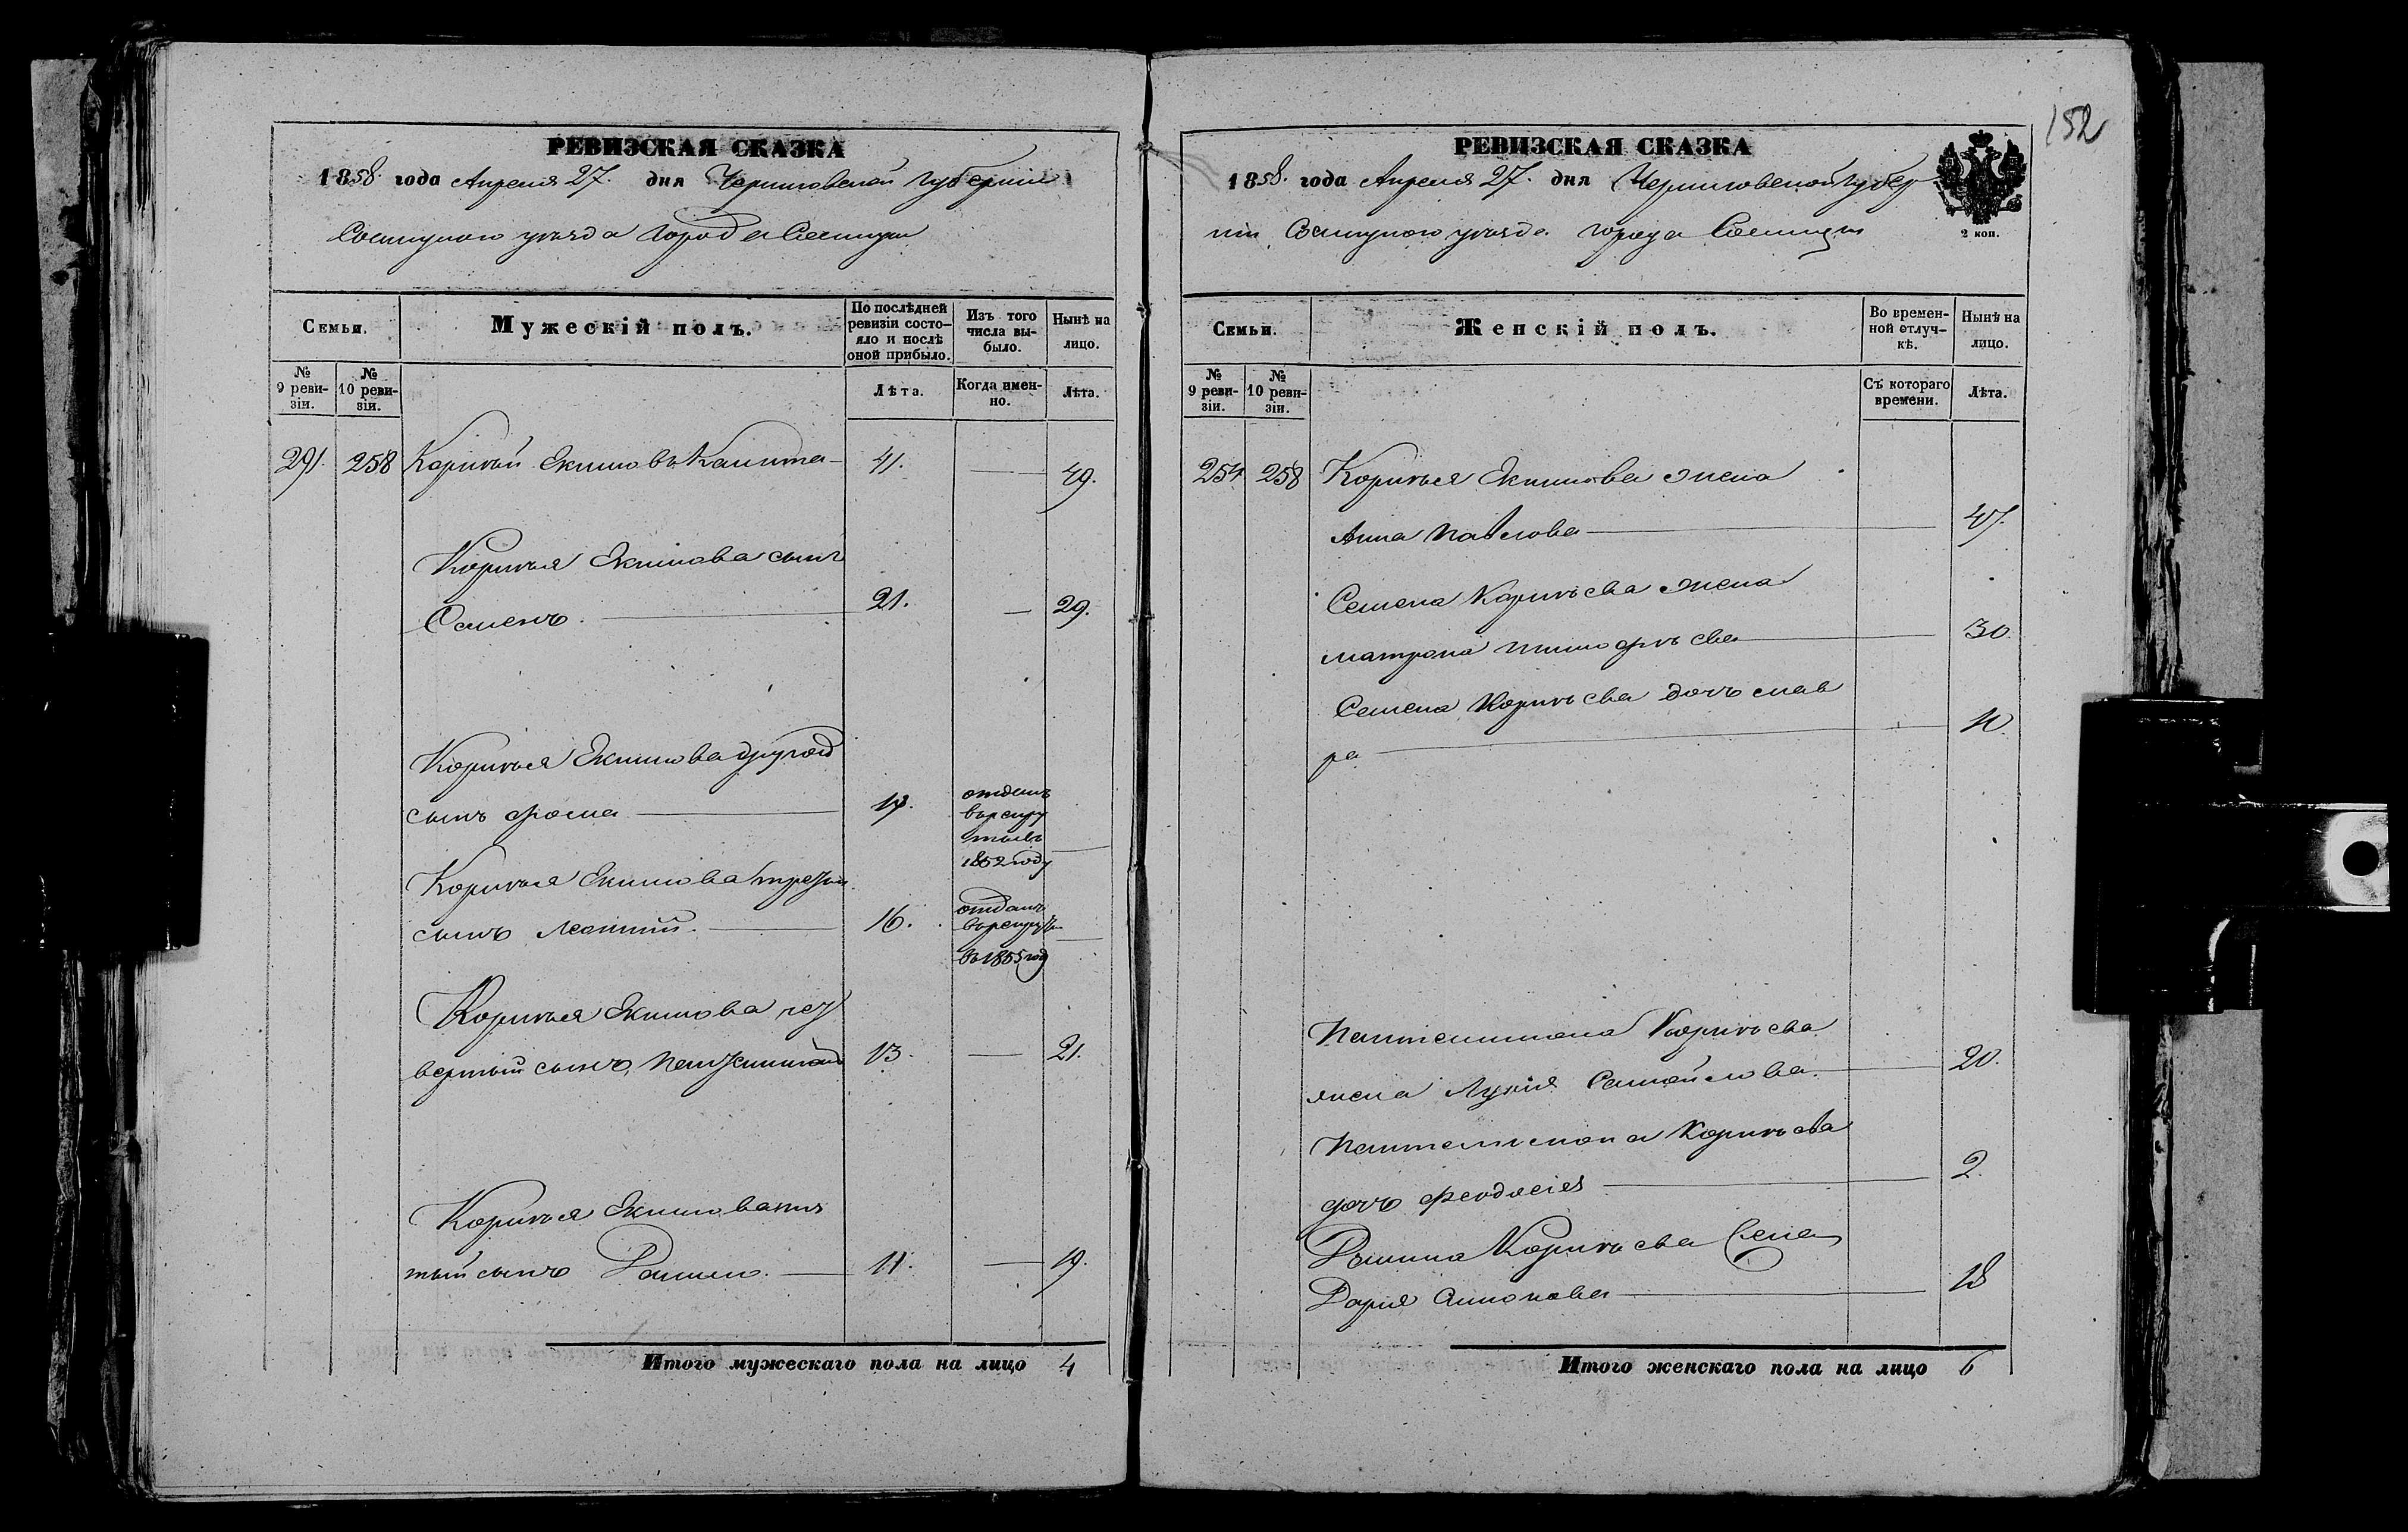 152
РЕВИЗСКАЯ СКАЗКА
1858. года Апреля 27. дня Черниговской губерніи
Сосницкого уезда города Сосницы
Семьи.
Мужескій полъ.
По послѣдней ревизіи состо-
яло и послѣ оной прибыло.
Изъ того числа вы-
было.
Нынѣ на лицо.
№ 9 реви-
зіи.
№ 10 реви-
зіи.
Лѣта.
Когда имен-
но.
Лѣта.
291. 258 Корнѣй Екимовъ 41. — 49.
Корнѣя Екимова сынъ
Семенъ. 21. — 29.
Корнѣя Екимова другой
сынъ Фома 17. отданъ
въ рекру
ты въ
1852 году
Корнѣя Екимова третий
сынъ Леонтий. 16. отданъ
в рекруты
въ 1855 году
Корнѣя Екимова чет
вертый сынъ Пантелимонъ 13. — 21.
Корнѣя Екимова пя
тый сынъ Данило. 11. — 19.
Итого мужескаго пола на лицо 4
РЕВИЗСКАЯ СКАЗКА
1858. года Апреля 27. дня Черниговской губер
ніи Сосницкого уезда города Сосницы
2 коп.
Семьи.
Женскій полъ.
Во времен-
ной отлуч-
кѣ.
Нынѣ на лицо.
№ 9 реви-
зіи.
№ 10 реви-
зіи.
Съ котораго времени.
Лѣта.
254 258 Корнѣя Екимова жена
Анна Павлова 47.
Семена Корнѣева жена
Матрона Тимофѣева 30.
Семена Корнѣева дочъ Мав
ра 10.
Пантелимона Корнѣева
жена Лукія Самойлова. 20.
Пантелимона Корнѣева
дочъ Феодосія 2.
Данила Корнѣева жена
Дарія Симонова 18
Итого женскаго пола на лицо 6